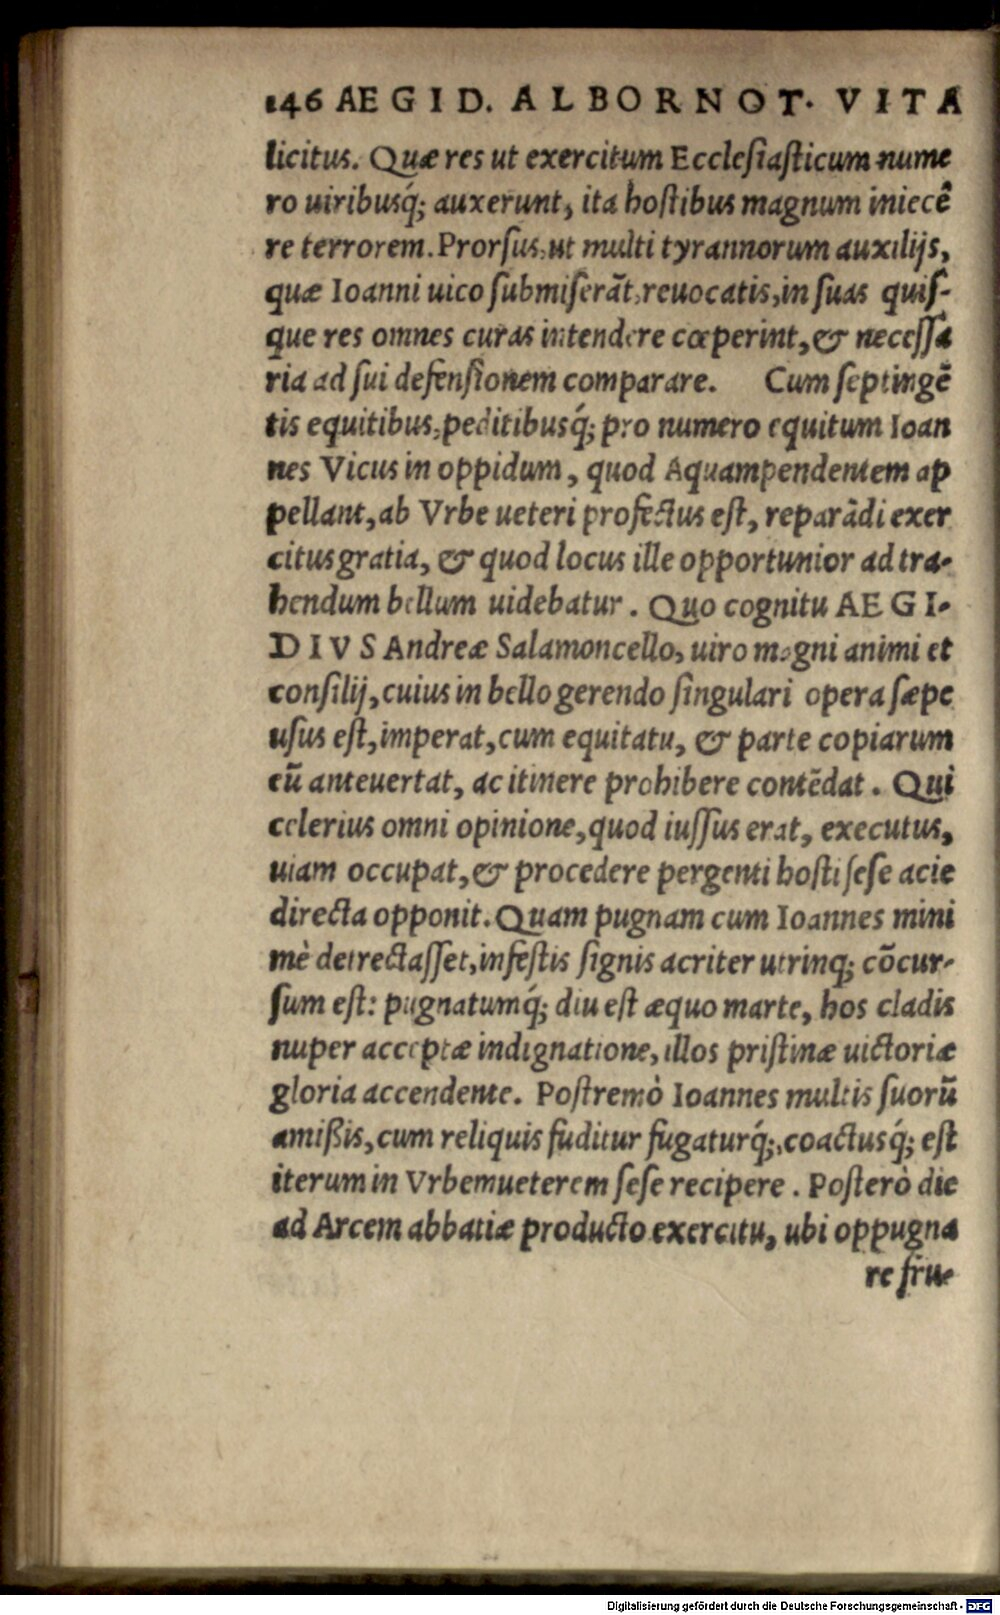 146 AEGID. ALBORNOT. VITA
licitus. Quæ res ut exercitum Ecclesiasticum nume
ro uiribusq́; auxerunt, ita hostibus magnum iniecê
re terrorem. Prorsus, ut multi tyrannorum auxilijs,
quæ Ioanni uico submiserãt, reuocatis, in suas quis-
que res omnes curas intendere cœperint, & necessa
ria ad sui defensionem comparare. Cum septingẽ
tis equitibus, peditibusq́; pro numero equitum Ioan
nes Vicus in oppidum, quod Aquampendentem ap
pellant, ab Vrbe ueteri profectus est, reparãdi exer
citus gratia, & quod locus ille opportunior ad tra-
hendum bellum uidebatur. Quo cognitu AEGI-
DIVS Andreæ Salamoncello, uiro magni animi et
consilij, cuius in bello gerendo singulari opera sæpe
usus est, imperat, cum equitatu, & parte copiarum
eũ anteuertat, ac itinere prohibere contẽdat. Qui
celerius omni opinione, quod iussus erat, executus,
uiam occupat, & procedere pergenti hosti sese acie
directa opponit. Quam pugnam cum Ioannes mini
mè detrectasset, infestis signis acriter utrinq; cõcur-
sum est: pugnatumq́; diu est æquo marte, hos cladis
nuper acceptæ indignatione, illos pristinæ uictoriæ
gloria accendente. Postremò Ioannes multis suorũ
amißis, cum reliquis fuditur fugaturq́;, coactusq́; est
iterum in Vrbemueterem sese recipere. Posterò die
ad Arcem abbatiæ producto exercitu, ubi oppugna
re fru-
Digitalisierung gefördert durch die Deutsche Forschungsgemeinschaft - DFG